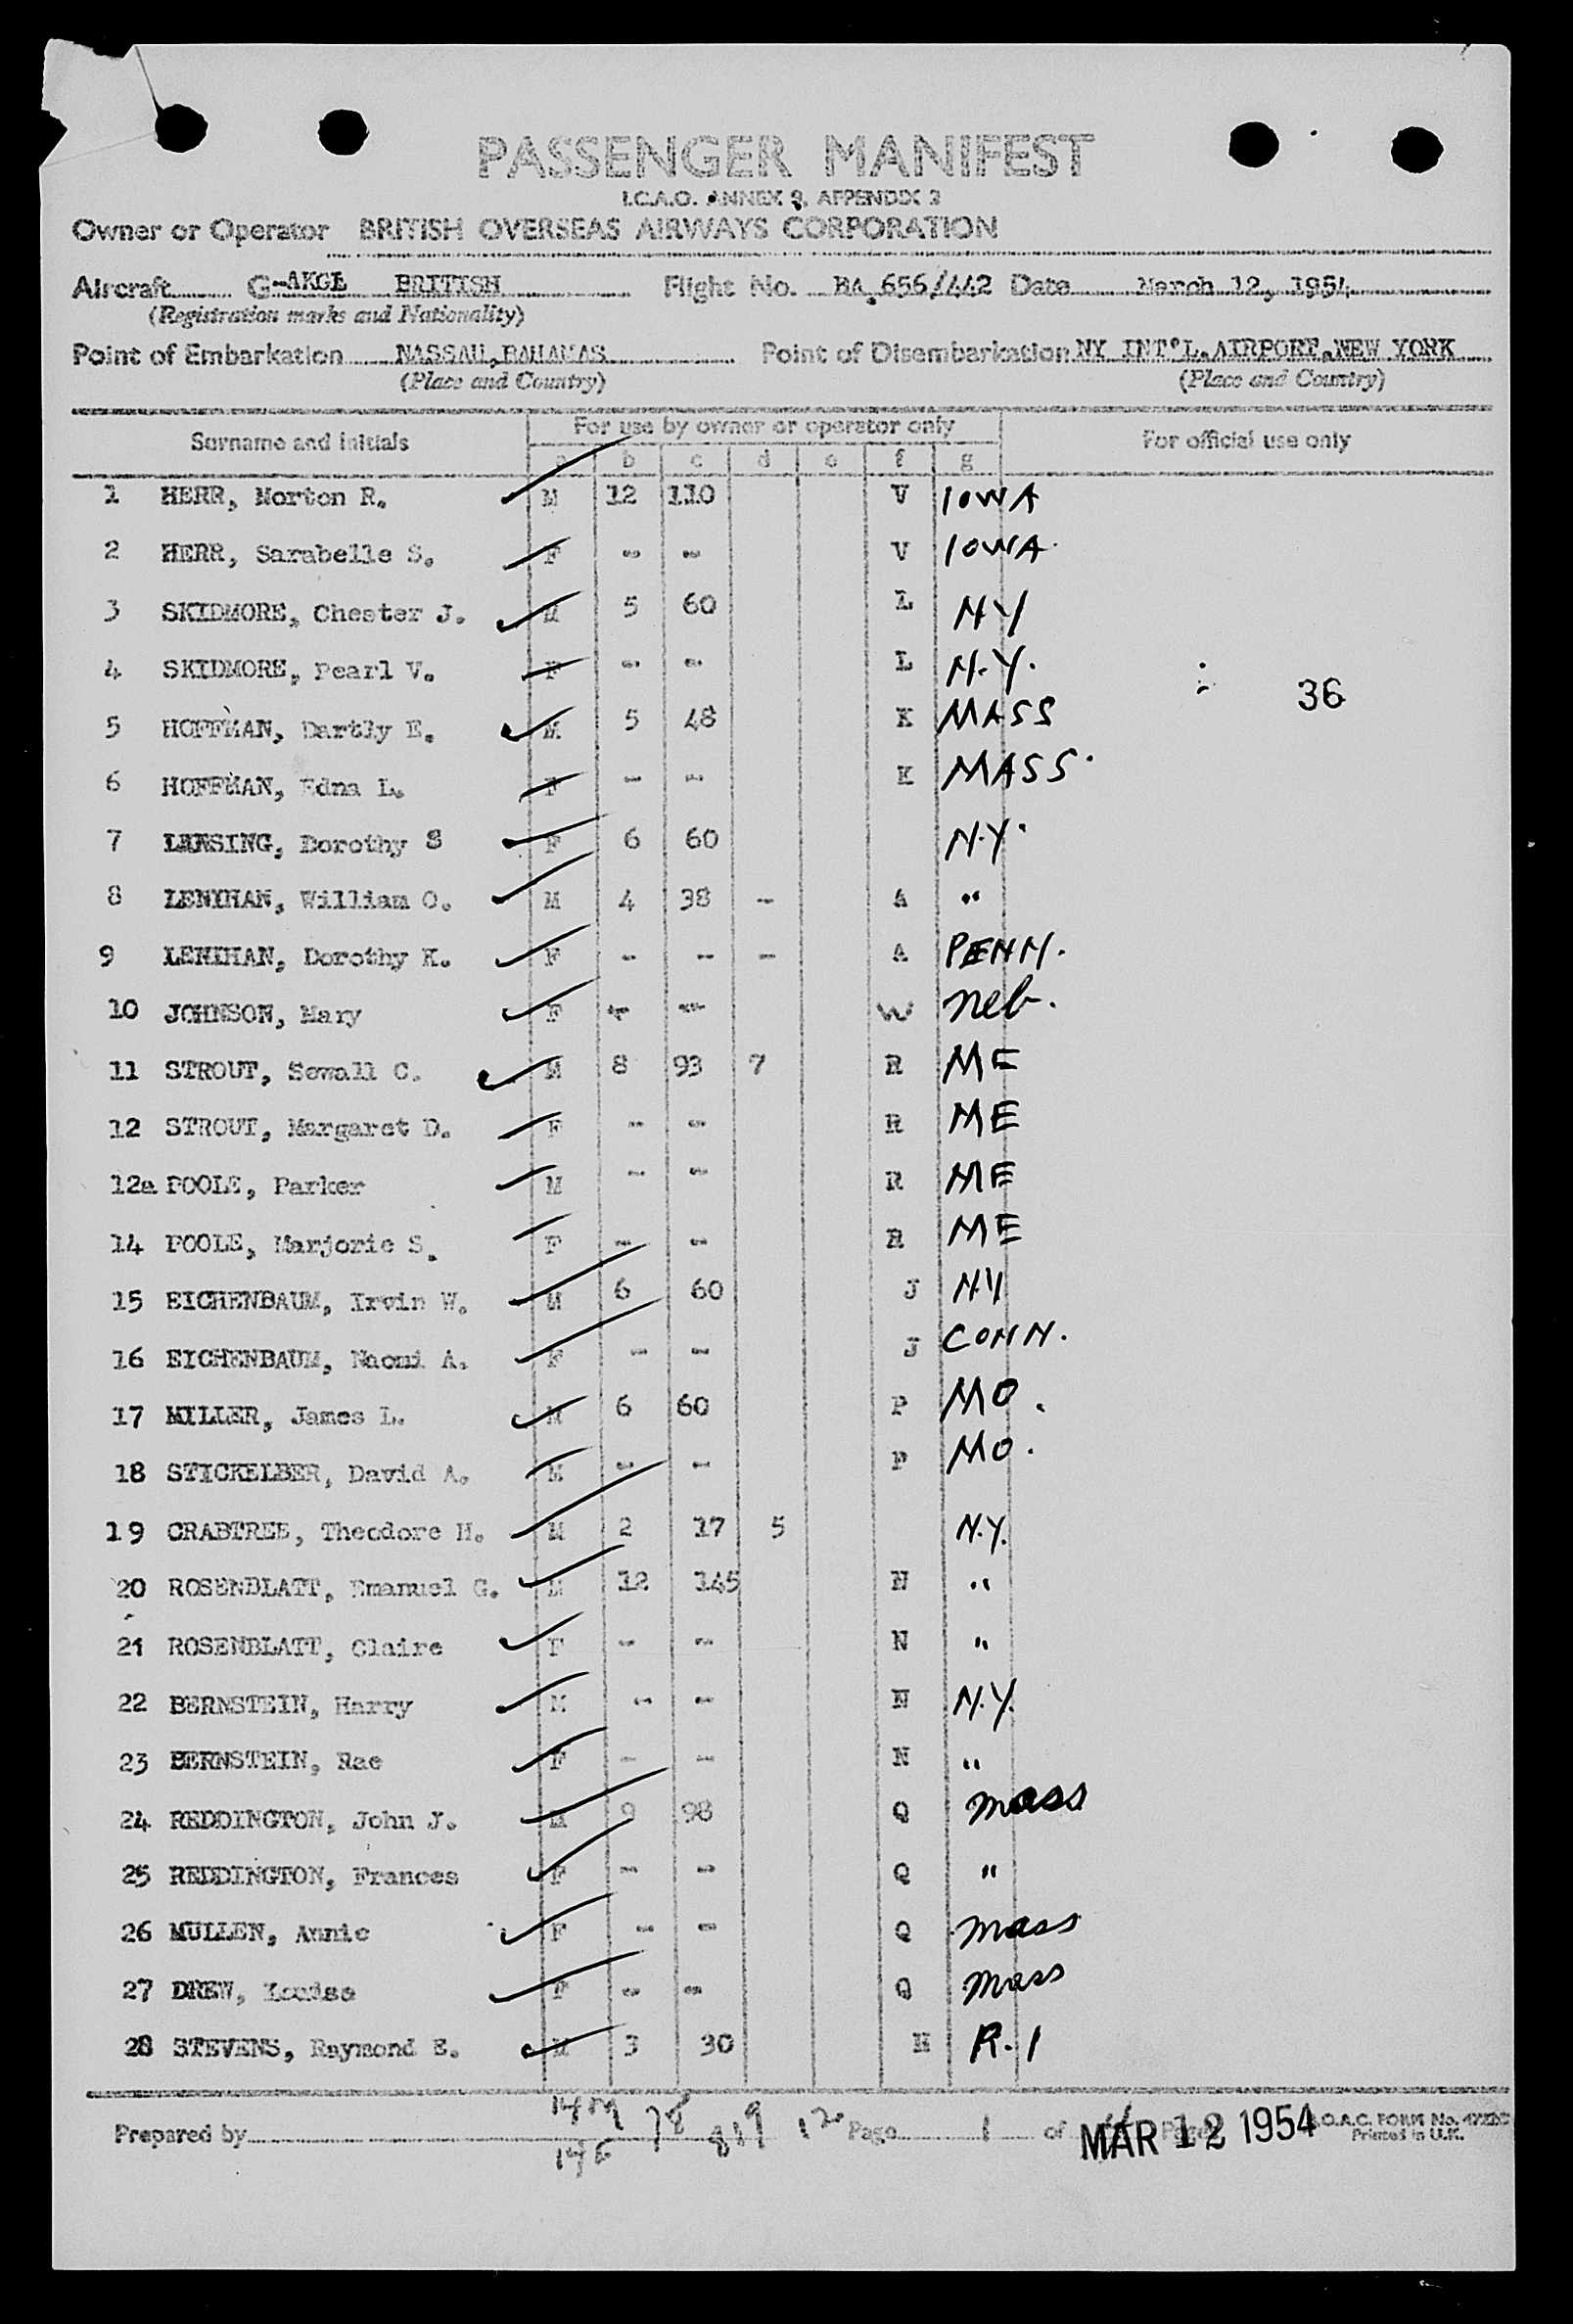 PASSENGER MANIFEST
I.C.A.O. ANNEX 9, APPENDIX 3
Owner or Operator BRITISH OVERSEAS AIRWAYS CORPORATION
Aircraft G-AKGL BRITISH Flight No. BA.656/442 Date March 12, 1954
(Registration marks and Nationality)
Point of Embarkation NASSAU,BAHAMAS Point of Disembarkation NY INT'L.AIRPORT.NEW YORK
(Place and Country) (Place and Country)
Surname and initials For use by owner or operator only For official use only
a b c d e f g
1 HERR, Norton R. M 12 110 V IOWA
2 HERR, Sarabelle S. F - - V IOWA.
3 SKIDMORE, Chester J. M 5 60 L NY
4 SKIDMORE, Pearl V. F - - L N.Y.
36
5 HOFFMAN, Dartly E. M 5 48 K MASS
6 HOFFMAN, Edna L. F - - K MASS.
7 LANSING, Dorothy S F 6 60 N.Y.
8 LENIHAN, William O. M 4 38 - A "
9 LENIHAN, Dorothy K. F - - - A PENN.
10 JOHNSON, Mary F - - W Neb.
11 STROUT, Sewall C. M 8 93 7 R ME
12 STROUT, Margaret D. F - - R ME
12a POOLE, Parker M - - R ME
14 POOLE, Marjorie S. F - - R ME
15 EICHENBAUM, Irvin W. M 6 60 J NY
16 EICHENBAUM, Naomi A. F - - J CONN.
17 MILLER, James L. M 6 60 P MO.
18 STICKELBER, David A. M - - P MO.
19 CRABTREE, Theodore H. M 2 17 5 N.Y.
20 ROSENBLATT, Emanuel G. M 12 145 N "
21 ROSENBLATT, Claire F - - N "
22 BERNSTEIN, Harry M - - N N.Y.
23 BERNSTEIN, Rae F - - N "
24 REDDINGTON, John J. M 9 98 Q Mass
25 REDDINGTON, Frances F - - Q "
26 MULLEN, Annie F - - Q Mass
27 DREW, Louise F - - Q Mass
28 STEVENS, Raymond E. M 3 30 H R.I
14M 78 819 12
Prepared by Page 1 of MAR 12 1954 B.O.A.C. FORM No.
14F Printed in U.K.